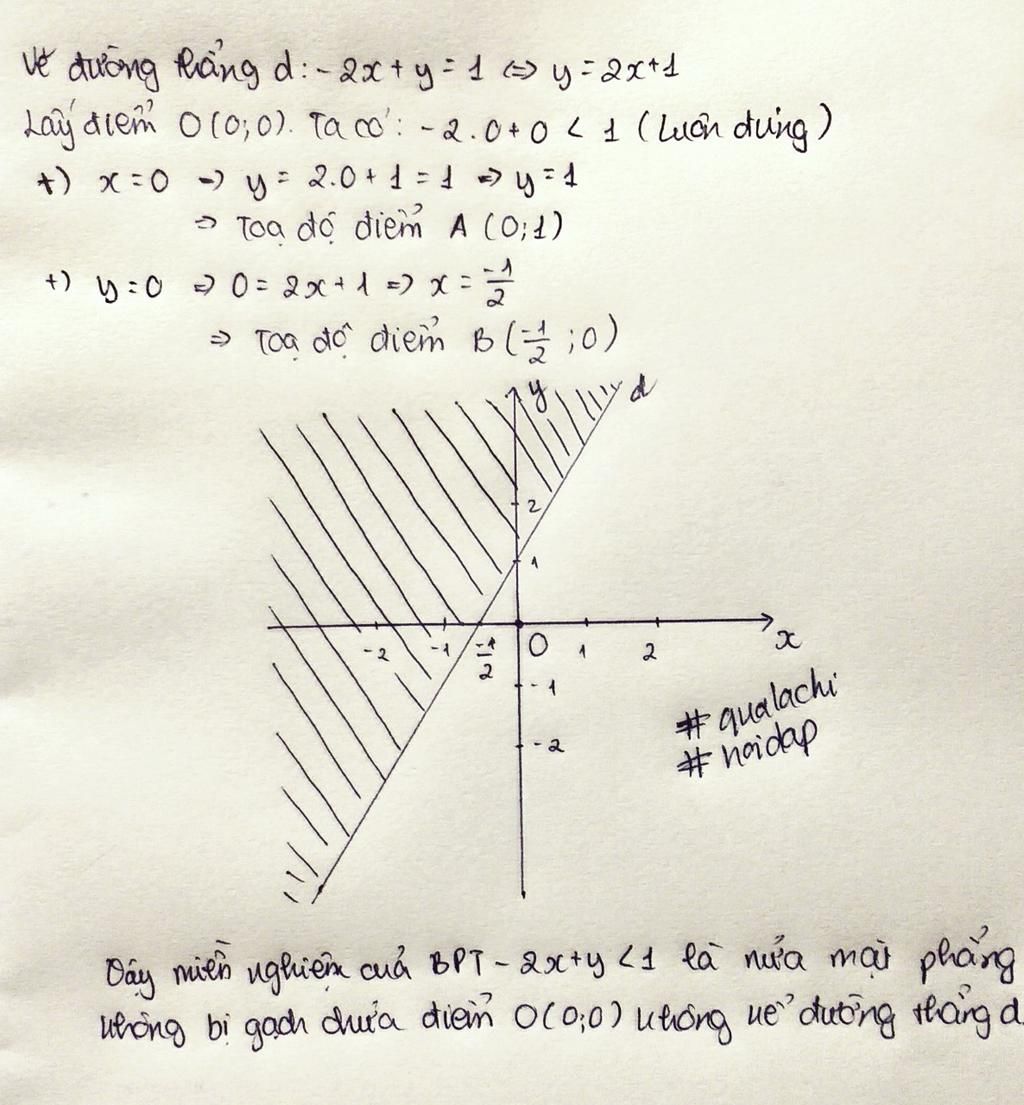 Vẽ đường thẳng d: -2x + y = 1 <=> y = 2x+1
Lấy điểm O(0;0). Ta có: -2.0+0 < 1 (Luôn đúng)
+) x=0 => y = 2.0+1 = 1 => y = 1
=> Toạ độ điểm A (0;1)
+) y=0 => 0 = 2x+1 => x = -1/2
=> Toạ độ điểm B (-1/2 ; 0)
y d
2
1
-2 -1 -1/2 O 1 2 x
-1
-2
# qualachi
# hoidap
Vậy miền nghiệm của BPT -2x+y < 1 là nửa mặt phẳng
không bị gạch chứa điểm O(0;0) không kể đường thẳng d.